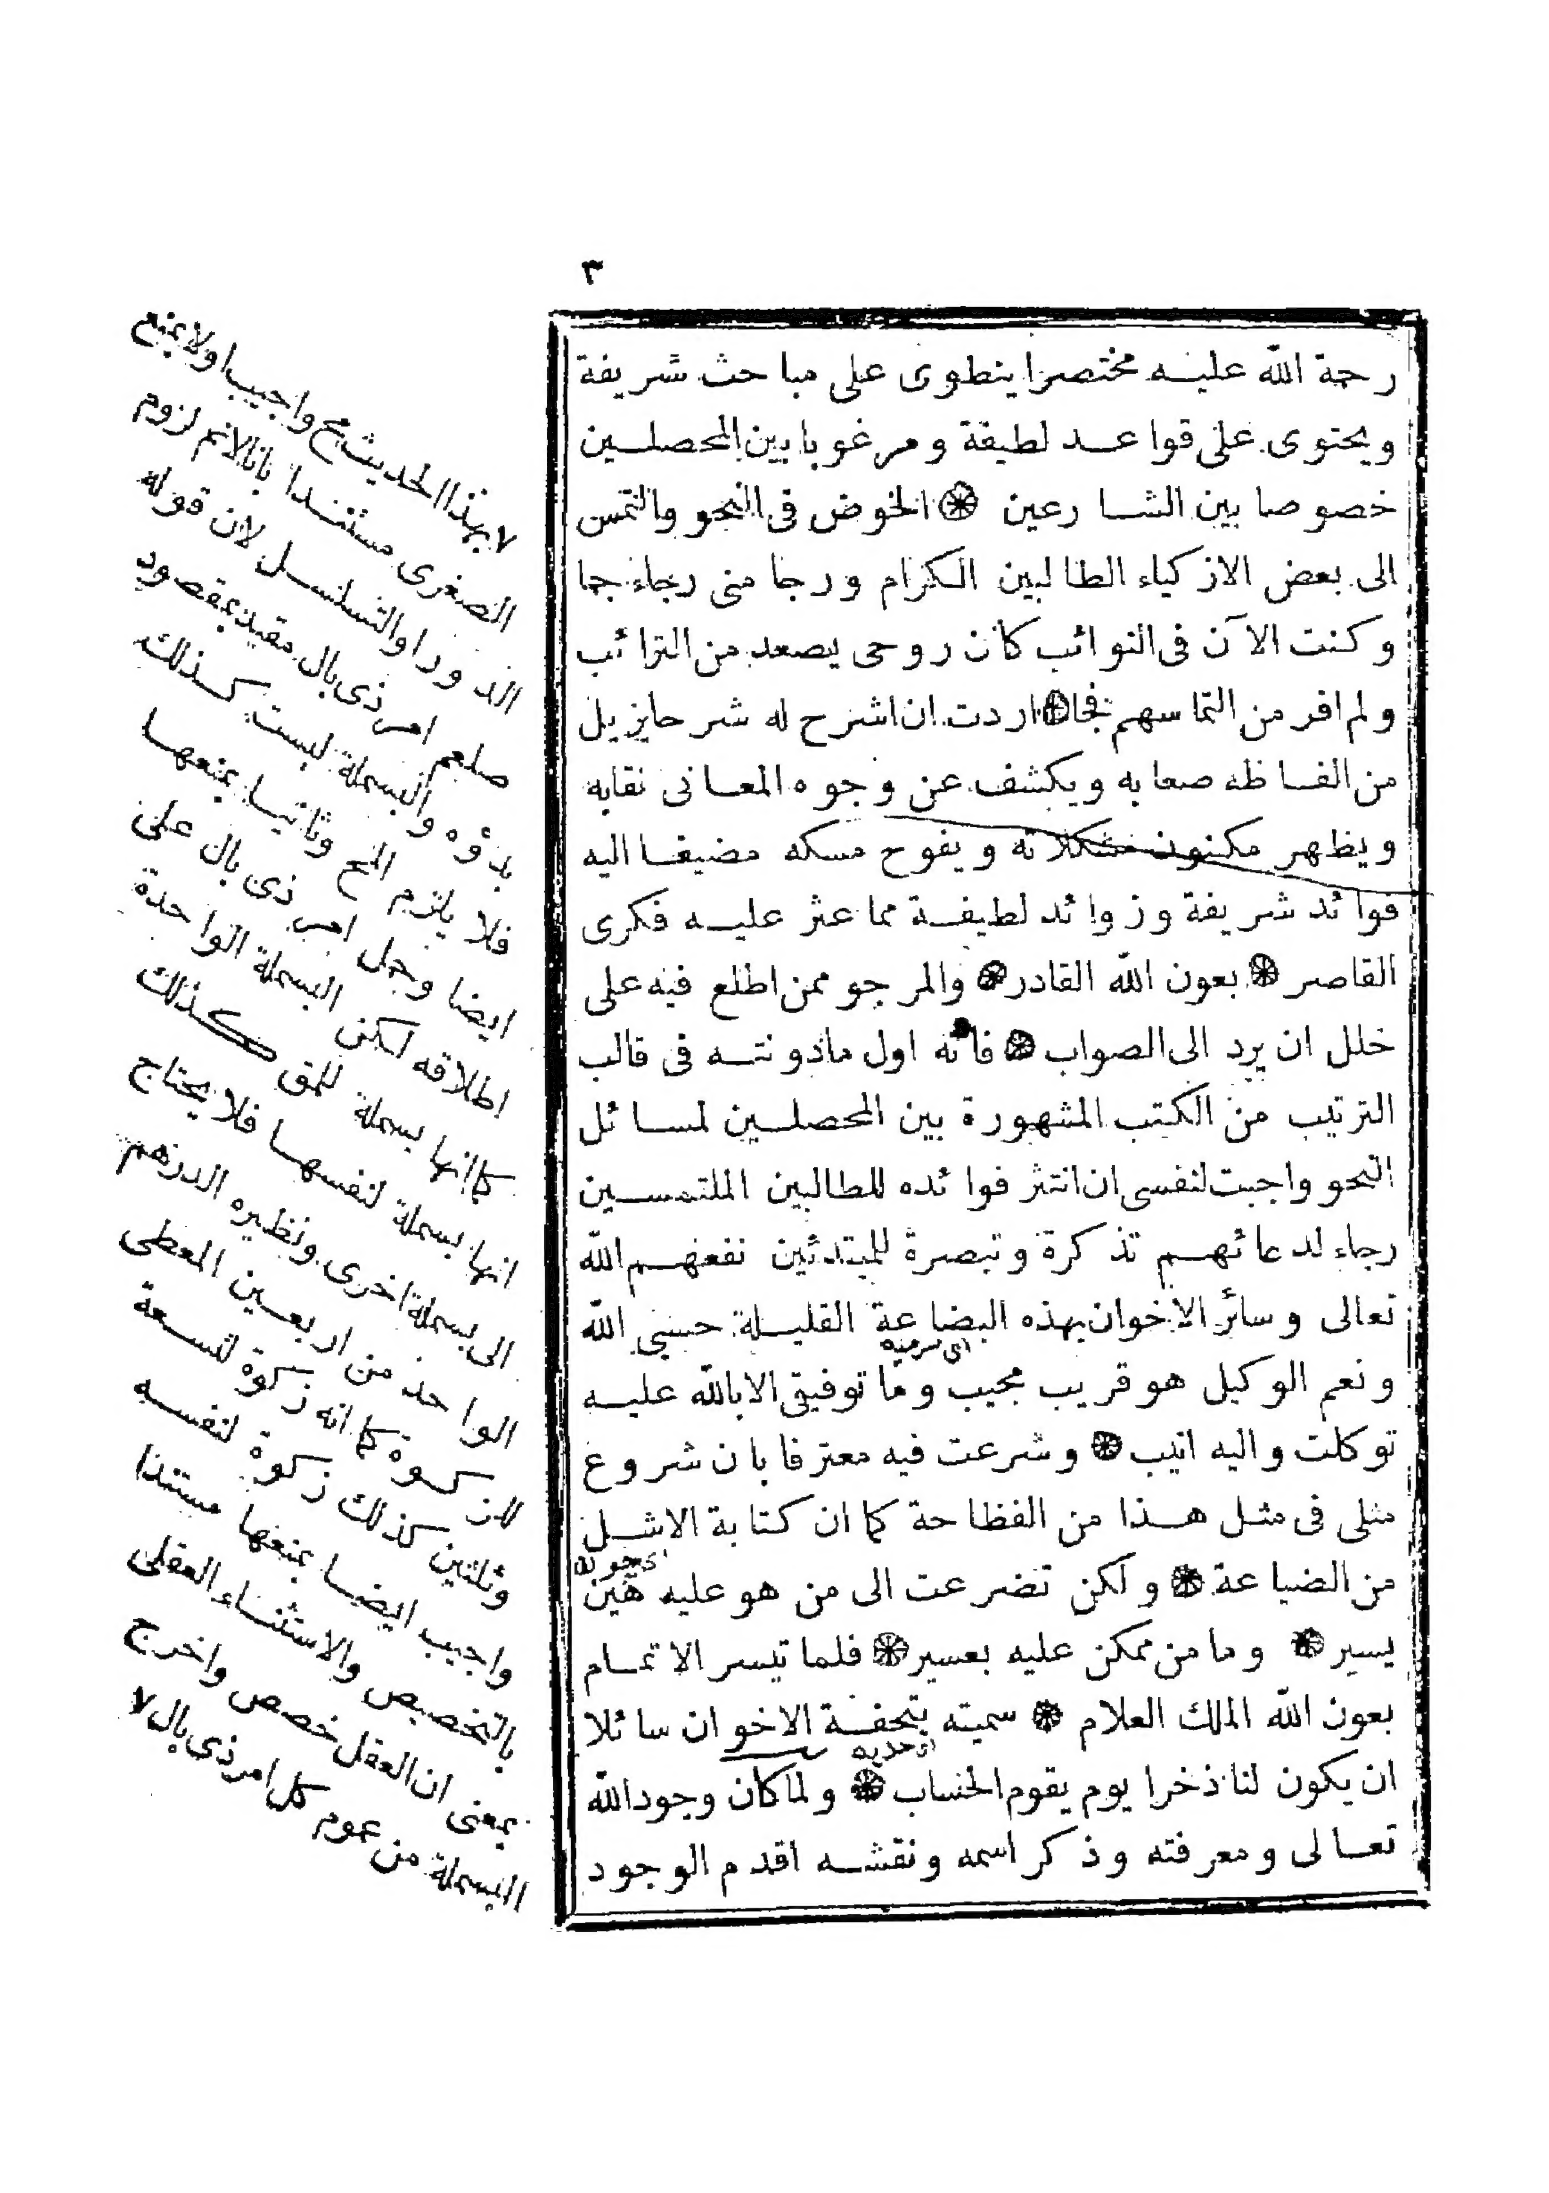 ٣
رحمة الله عليه مختصرا ينطوى على مباحث شريفة
ويحتوى على قواعد لطيفة ومرغوبا بين المحصلين
خصوصا بين الشارعين الخوض فى النحو والتمس
الى بعض الازكياء الطالبين الكرام ورجا منى رجاء جما
وكنت الآن فى النوائب كان روحى يصعد من الترائب
ولم افر من التماسهم فجا اردت ان اشرح له شرحا يزيل
من الفاظه صعابه ويكشف عن وجوه المعانى نقابه
ويظهر مكنون مشكلاته ويفوح مسكه مضيفا اليه
فوائد شريفة وزوائد لطيفة مما عثر عليه فكرى
القاصر بعون الله القادر والمرجو ممن اطلع فيه على
خلل ان يرد الى الصواب فانه اول مادونته فى قالب
الترتيب من الكتب المشهورة بين المحصلين لمسائل
النحو واجبت لنفسى ان انتثر فوائده للطالبين الملتمسين
رجاء لدعائهم تذكرة وتبصرة للمبتدئين نفعهم الله
تعالى وسائر الاخوان بهذه البضاعة القليلة حسبى الله
ونعم الوكيل هو قريب مجيب وما توفيقى الا بالله عليه
توكلت واليه انيب وشرعت فيه معترفا بان شروع
مثلى فى مثل هذا من الفظاحة كما ان كتابة الاشل
من الضياعة ولكن تضرعت الى من هو عليه هين
يسير وما من ممكن عليه بعسير فلما تيسر الاتمام
بعون الله الملك العلام سميته بتحفة الاخوان سائلا
ان يكون لنا ذخرا يوم يقوم الحساب ولما كان وجود الله
تعالى ومعرفته وذكر اسمه ونقشه اقدم الوجود
بهذا الحديث مح واجيب اولا بمنع
الصغرى مستندا بانا لانم لزوم
الدور او التسلسل لان قوله
صلعم امر ذى بال مقيد بمقصود
بدؤه والبسملة ليست كذلك
فلا يلزم المح وثانيا بمنعها
ايضا وجل امر ذى بال على
اطلاقه لكن البسملة الواحدة
كما انها بسملة للمق كذلك
انها بسملة لنفسها فلا يحتاج
الى بسملة اخرى ونظيره الدرهم
الواحد من اربعين المعطى
للزكوة كما انه زكوة لتسعة
وثلثين كذلك زكوة لنفسه
واجيب ايضا بمنعها مستندا
بالتخصيص والاستثناء العقلى
بمعنى ان العقل خصص واخرج
البسملة من عموم كل امر ذى بال لا